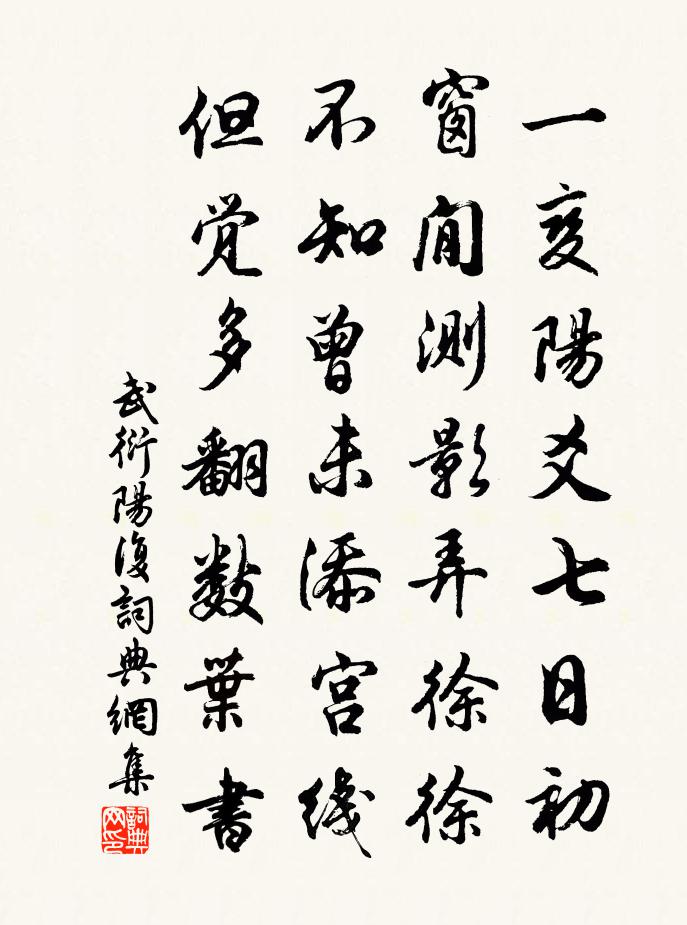 一变陽爻七日初
窗間測影弄徐徐
不知曾未添宫綫
但觉多翻數葉書
武衍陽復詞典網集
詞典
网印